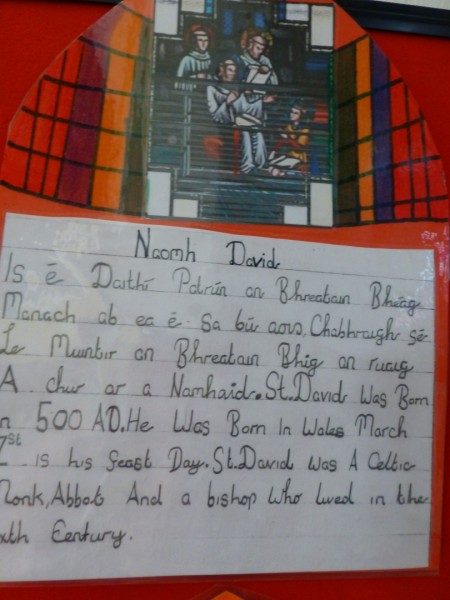 Naomh David
Is é Daithí Patrún an Bhreatain Bheag
Manach ab ea é. Sa bú aois, Chabhraigh sé
Le Muintir an Bhreatain Bhig an ruaig
A chur ar a Namhaid. St. David Was Born
n 500 AD. He Was Born In Wales March
1st is his feast Day. St. David was A Celtic
Monk, Abbot And a bishop Who lived in the
xth Century.